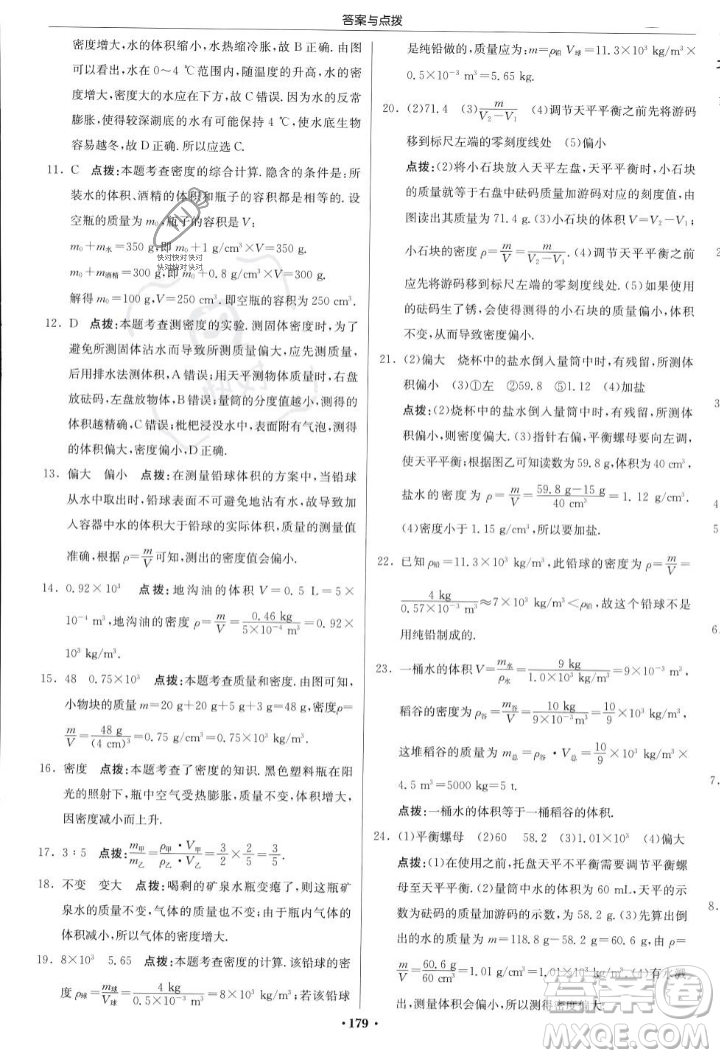 答案与点拨
密度增大，水的体积缩小，发生热缩冷胀，故 B 正确. 由图
可以看出，水在 0～4 ℃范围内，随温度的升高，水的密
度增大，密度大的水应在下方，故 C 错误. 由于水的反常
膨胀，使得较深湖底的水有可能保持 4 ℃，底水生物不
容易越冬，故 D 正确. 故选 ACD.
11. C　点拨：本题考查密度的综合计算. 隐含的条件是：所
装水的体积、酒精的体积和瓶子的容积都是相等的. 设
空瓶的质量为 m₀，瓶子的容积为 V：
m₀＋m水＝350 g，即 m₀＋1 g/cm³×V＝350 g.
m₀＋m酒精＝300 g，即 m₀＋0.8 g/cm³×V＝300 g.
解得 m₀＝100 g，V＝250 cm³，即空瓶的容积为 250 cm³.
12. D　点拨：本题考查测密度的实验. 测固体密度时，为了
避免所测固体沾水而导致所测质量偏大，应先测质量，
后用排水法测体积，A 错误；用天平测物体时，右盘
放砝码，左盘放物体，B 错误；量筒的分度值越小，测得的
体积越精确，C 错误；枇杷浸没水中，表面附有气泡，测得
的体积偏大，密度偏小，D 正确.
13. 偏大　偏小　点拨：在测量铅球体积的方案中，当铅球
从水中取出时，铅球上会沾有一部分水，故导致再次加
入容器中水的体积大于铅球的实际体积，质量的测量值
准确，根据 ρ＝m/V 可知，测出的密度值会偏小.
14. 0.92×10³　点拨：地沟油的体积 V＝0.5 L＝5×
10⁻⁴ m³，地沟油的密度 ρ＝m/V＝0.46 kg/(5×10⁻⁴ m³)＝0.92×
10³ kg/m³.
15. 48　0.75×10³　点拨：本题考查质量和密度. 由图可知，
小物块的质量 m＝20 g＋20 g＋5 g＋3 g＝48 g，密度 ρ＝
m/V＝48 g/(4 cm)³＝0.75 g/cm³＝0.75×10³ kg/m³.
16. 密度　点拨：本题考查了密度的知识. 黑色塑料瓶在阳
光的照射下，瓶中空气受热膨胀，体积增大，质量不变，
因密度减小而上升.
17. 3∶5　点拨：m甲/m乙＝ρ甲·V甲/(ρ乙·V乙)＝3/2×2/5＝3/5.
18. 不变　变大　点拨：喝剩的矿泉水瓶变瘪了，但瓶内矿
泉水的质量不变，气体的质量也不变；由于瓶内气体的
体积减小，所以气体的密度增大.
19. 8×10³　5.65　点拨：本题考查密度的计算. 该铅球的密
度 ρ球＝m球/V球＝4 kg/(0.5×10⁻³ m³)＝8×10³ kg/m³；若该铅球
是纯铅做的，质量应为 m＝ρ铅 V球＝11.3×10³ kg/m³×
0.5×10⁻³ m³＝5.65 kg.
20. (2)71.4　(3)m/(V₂－V₁)　(4)调节天平平衡之前先将游码
移到标尺左端的零刻度线处　(5)偏小
点拨：(2)将小石块放入天平左盘，天平平衡时，小石块
的质量就等于右盘中砝码加游码对应的刻度值，由
图读出其质量为 71.4 g. (3)小石块的体积 V＝V₂－V₁，
小石块的密度 ρ＝m/V＝m/(V₂－V₁). (4)调节天平平衡之前
应先将游码移到标尺左端的零刻度线处. (5)实验使用
的砝码生了锈，使所测小石块的质量偏小，小石块体积
不变，所以测得小石块的密度会偏小.
21. (2)偏大　烧杯中的盐水倒入量筒中时，有残留，所测的
体积偏小　(3)①左　②59.8　③1.12　(4)加盐
点拨：(2)烧杯中的盐水倒入量筒中时，有残留，所测体
积偏小，则密度偏大. (3)指针右偏，平衡螺母要左调，
使天平平衡；根据图乙可知读数为 59.8 g，体积为 40 cm³；
盐水的密度 ρ＝m/V＝(59.8 g－15 g)/40 cm³＝1.12 g/cm³.
(4)密度小于 1.15 g/cm³，所以要加盐.
22. 已知 ρ铅＝11.3×10³ kg/m³，此铅球的密度 ρ＝m/V＝
4 kg/(0.57×10⁻³ m³)≈7×10³ kg/m³＜ρ铅，故这个铅球不是
用纯铅制成的.
23. 一桶水的体积 V＝m水/ρ水＝9 kg/(1.0×10³ kg/m³)＝9×10⁻³ m³，
稻谷的密度 ρ谷＝m谷/V＝10 kg/(9×10⁻³ m³)＝10/9×10³ kg/m³，
这堆稻谷的质量 m总＝ρ谷·V总＝10/9×10³ kg/m³×
4.5 m³＝5000 kg＝5 t.
点拨：一桶水的体积等于一桶稻谷的体积.
24. (1)平衡螺母　(2)60　58.2　(3)1.01　(4)偏大
点拨：(1)使用天平前，托盘天平不平衡应调节平衡螺
母使天平平衡. (2)量筒中水的体积为 60 mL，天平的示
数为砝码加游码的示数，为 58.2 g. (3)先算出倒出
的水的质量 m＝118.8 g－58.2 g＝60.6 g，由 ρ＝
m/V＝60.6 g/60 cm³＝1.01 g/cm³＝1.01×10³ kg/m³. (4)量筒
测得体积会偏小，所以测得密度偏大.
· 179 ·